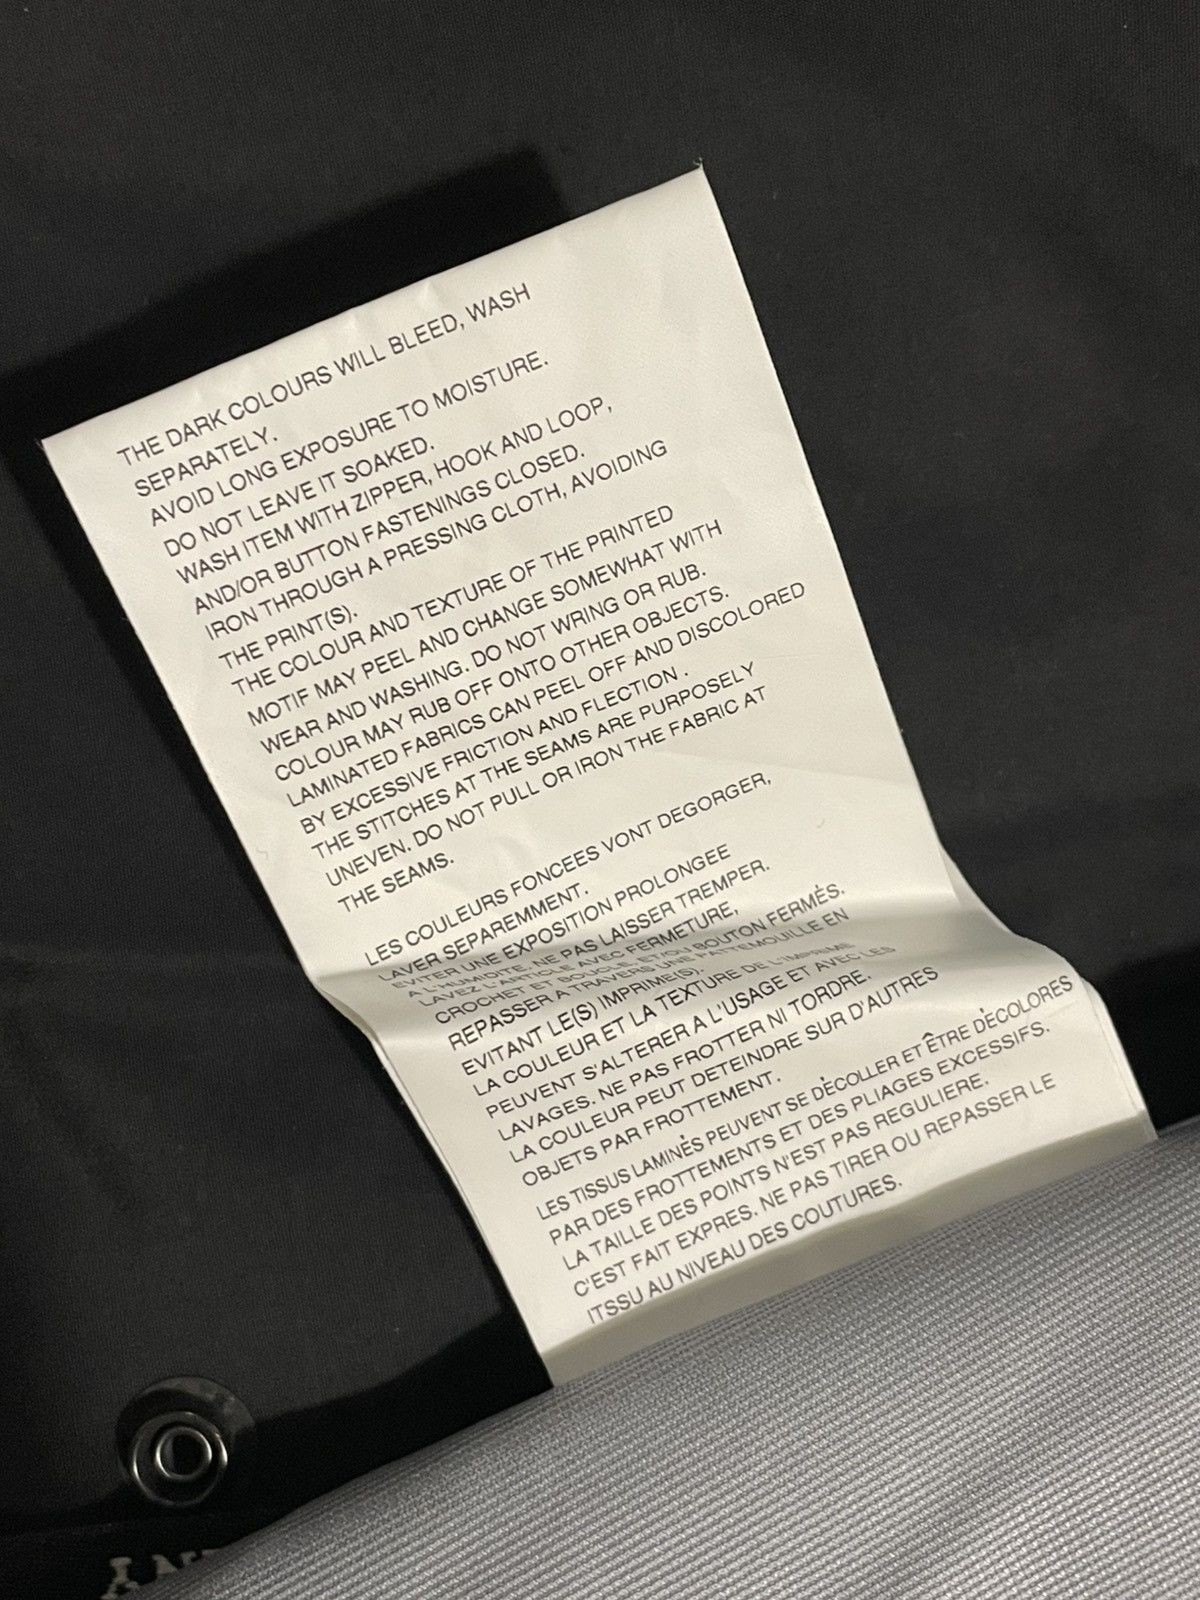 THE DARK COLOURS WILL BLEED, WASH
SEPARATELY.
AVOID LONG EXPOSURE TO MOISTURE.
DO NOT LEAVE IT SOAKED.
WASH ITEM WITH ZIPPER, HOOK AND LOOP,
AND/OR BUTTON FASTENINGS CLOSED.
IRON THROUGH A PRESSING CLOTH, AVOIDING
THE PRINT(S).
THE COLOUR AND TEXTURE OF THE PRINTED
MOTIF MAY PEEL AND CHANGE SOMEWHAT WITH
WEAR AND WASHING. DO NOT WRING OR RUB.
COLOUR MAY RUB OFF ONTO OTHER OBJECTS.
LAMINATED FABRICS CAN PEEL OFF AND DISCOLORED
BY EXCESSIVE FRICTION AND FLECTION .
THE STITCHES AT THE SEAMS ARE PURPOSELY
UNEVEN. DO NOT PULL OR IRON THE FABRIC AT
THE SEAMS.
LES COULEURS FONCEES VONT DEGORGER,
LAVER SEPAREMMENT.
EVITER UNE EXPOSITION PROLONGEE
A L'HUMIDITE. NE PAS LAISSER TREMPER.
LAVEZ L'ARTICLE AVEC FERMETURE,
CROCHET ET BOUCLE, ET/OU BOUTON FERMÉS.
REPASSER A TRAVERS UNE PATTEMOUILLE EN
EVITANT LE(S) IMPRIME(S).
LA COULEUR ET LA TEXTURE DE L'IMPRIME
PEUVENT S'ALTERER A L'USAGE ET AVEC LES
LAVAGES. NE PAS FROTTER NI TORDRE.
LA COULEUR PEUT DETEINDRE SUR D'AUTRES
OBJETS PAR FROTTEMENT.
LES TISSUS LAMINÉS PEUVENT SE DÉCOLLER ET ÊTRE DÉCOLORES
PAR DES FROTTEMENTS ET DES PLIAGES EXCESSIFS.
LA TAILLE DES POINTS N'EST PAS REGULIERE.
C'EST FAIT EXPRES. NE PAS TIRER OU REPASSER LE
ITSSU AU NIVEAU DES COUTURES.